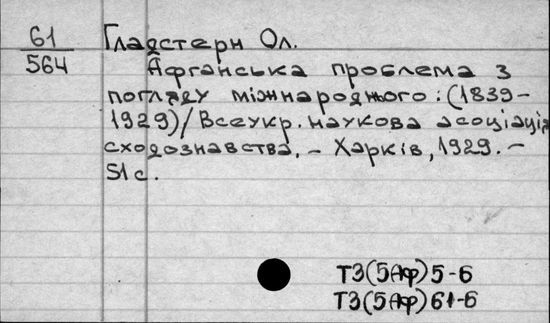 61
564
Гладстерн Ол.
Афганська проблема з
погляду міжнароднього: (1839-
1929)/Всеукр. наукова асоціація
сходознавства. - Харків, 1929. -
51 с.
Т3(5Аф)5-6
Т3(5Аф)61-6